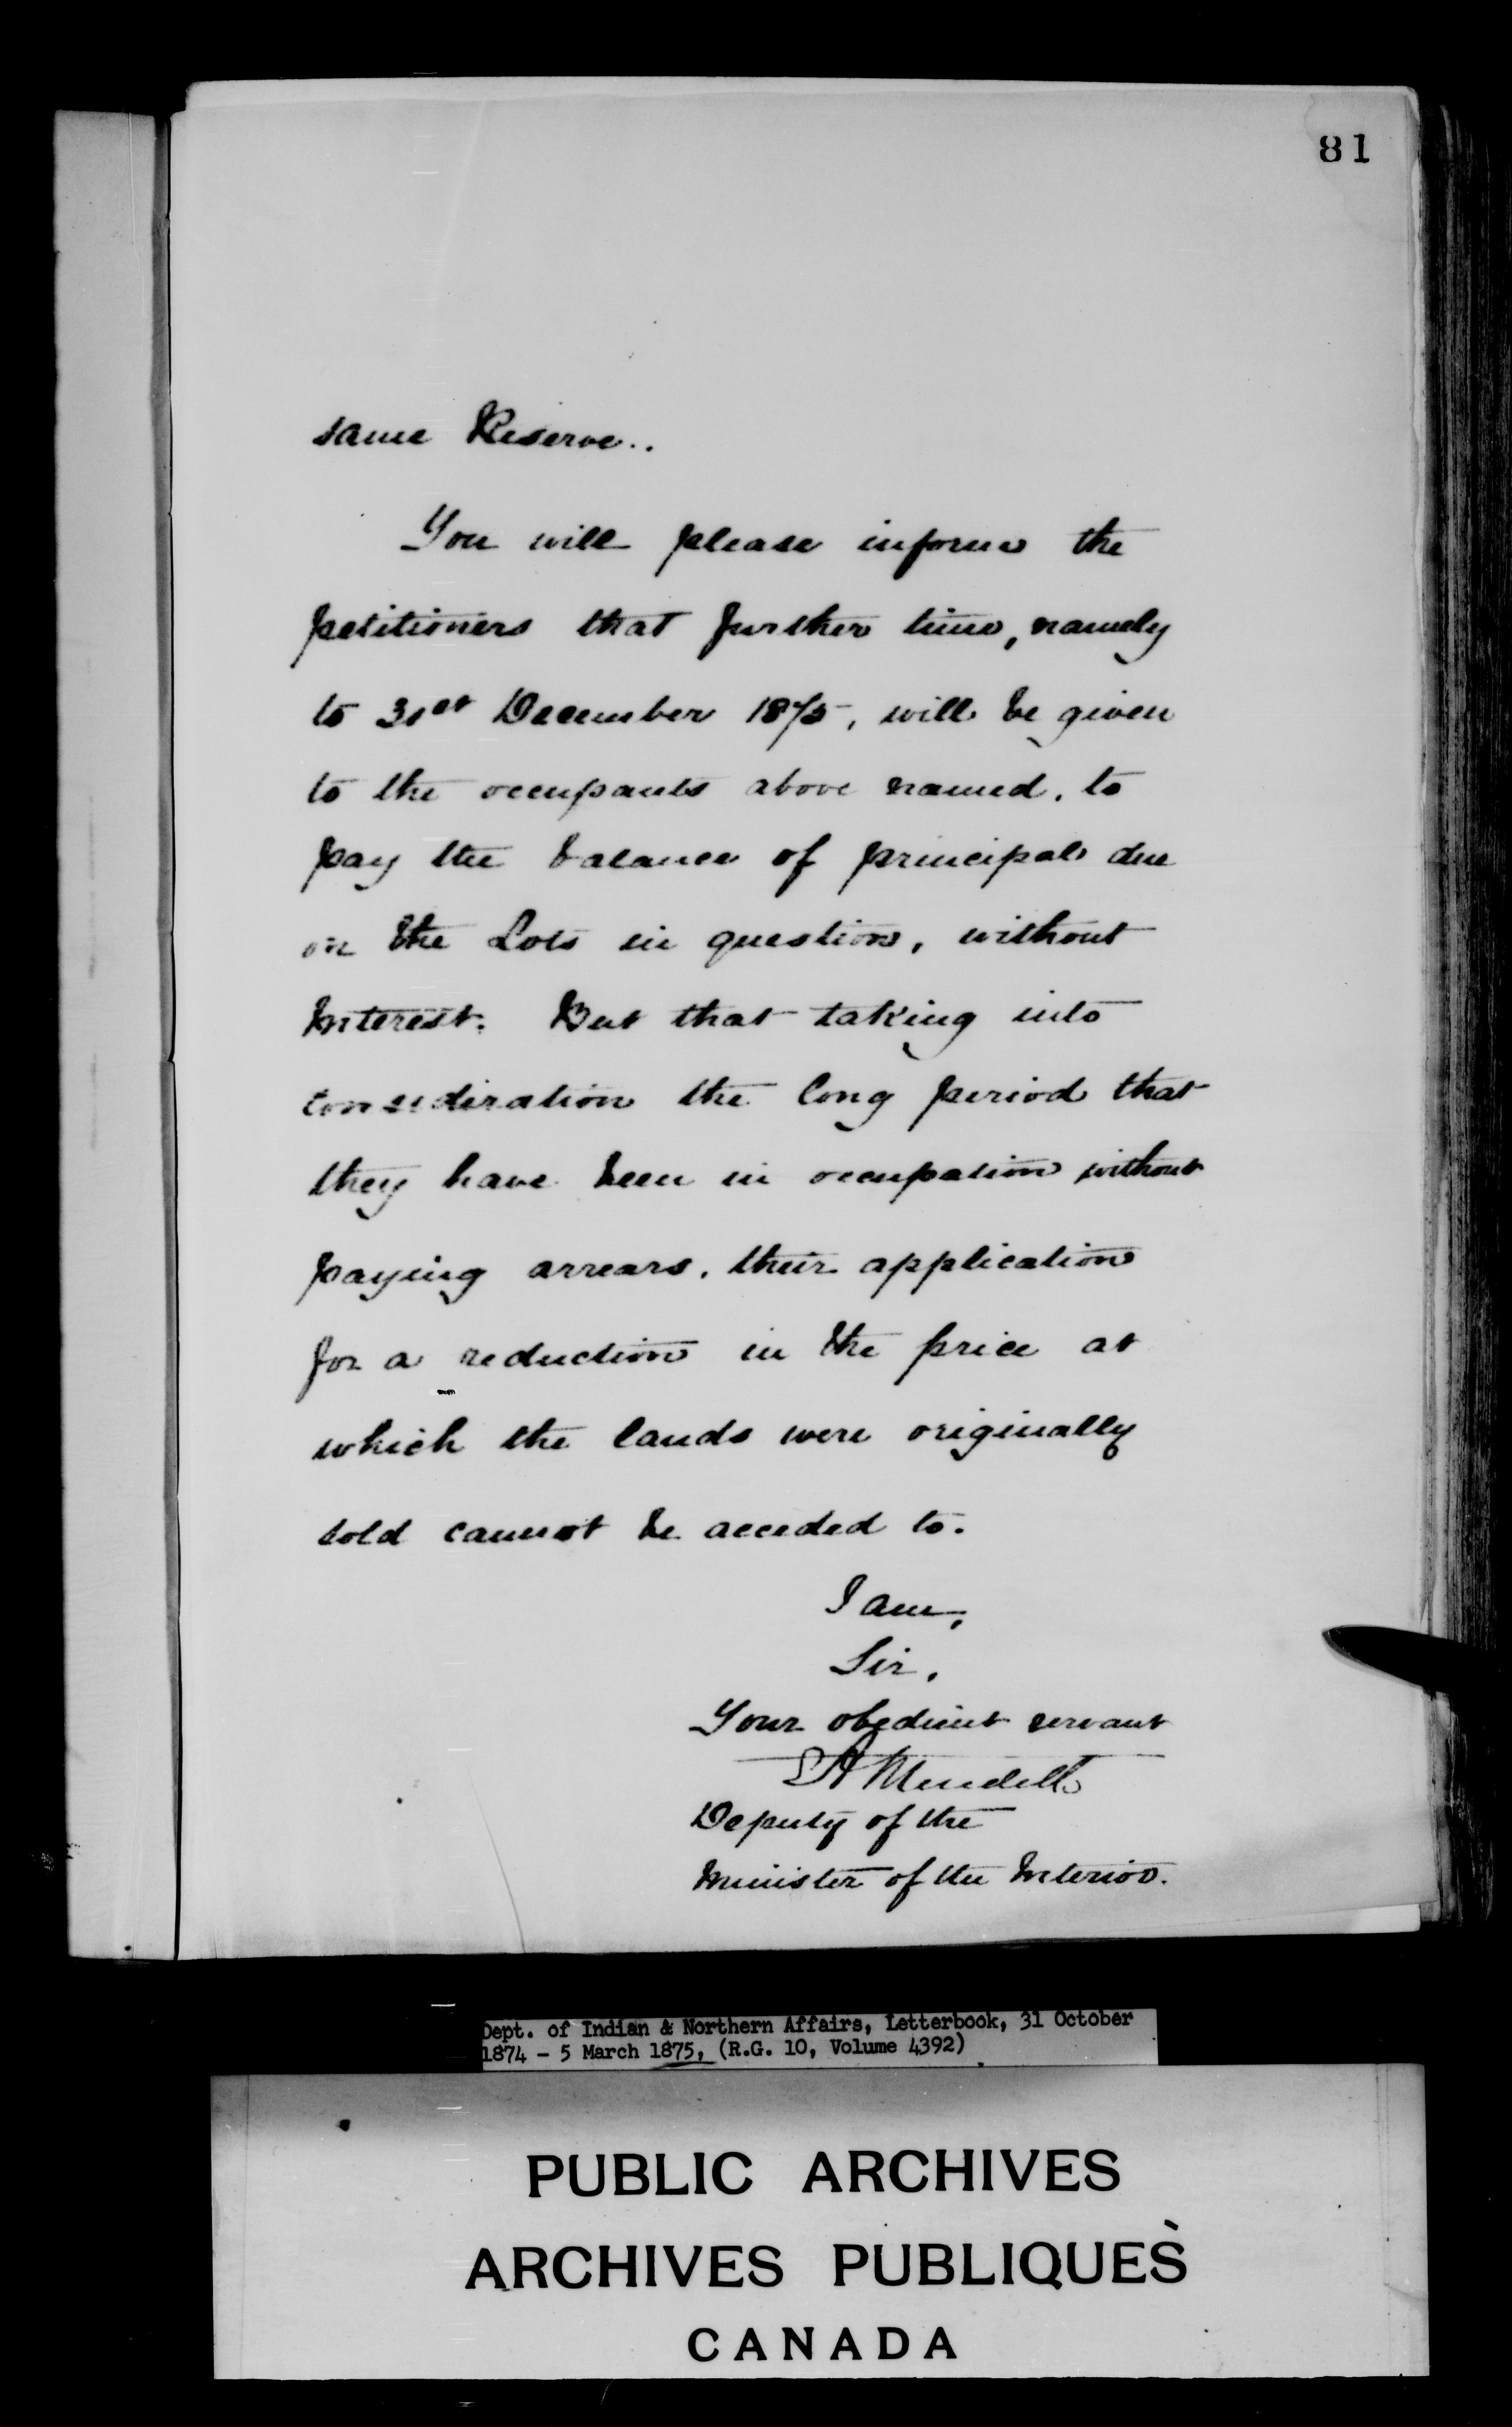 81
same Reserve..
You will please inform the
petitioners that further time, namely
to 31st December 1875, will be given
to the occupants above named, to
pay the balance of principal due
on the Lots in question, without
Interest. But that taking into
consideration the long period that
they have been in occupation without
paying arrears, their application
for a reduction in the price at
which the lands were originally
sold cannot be acceded to.
I am,
Sir,
Your obedient servant
Deputy of the
Minister of the Interior.
Dept. of Indian & Northern Affairs, Letterbook, 31 October
1874 - 5 March 1875, (R.G. 10, Volume 4392)
PUBLIC ARCHIVES
ARCHIVES PUBLIQUES
CANADA